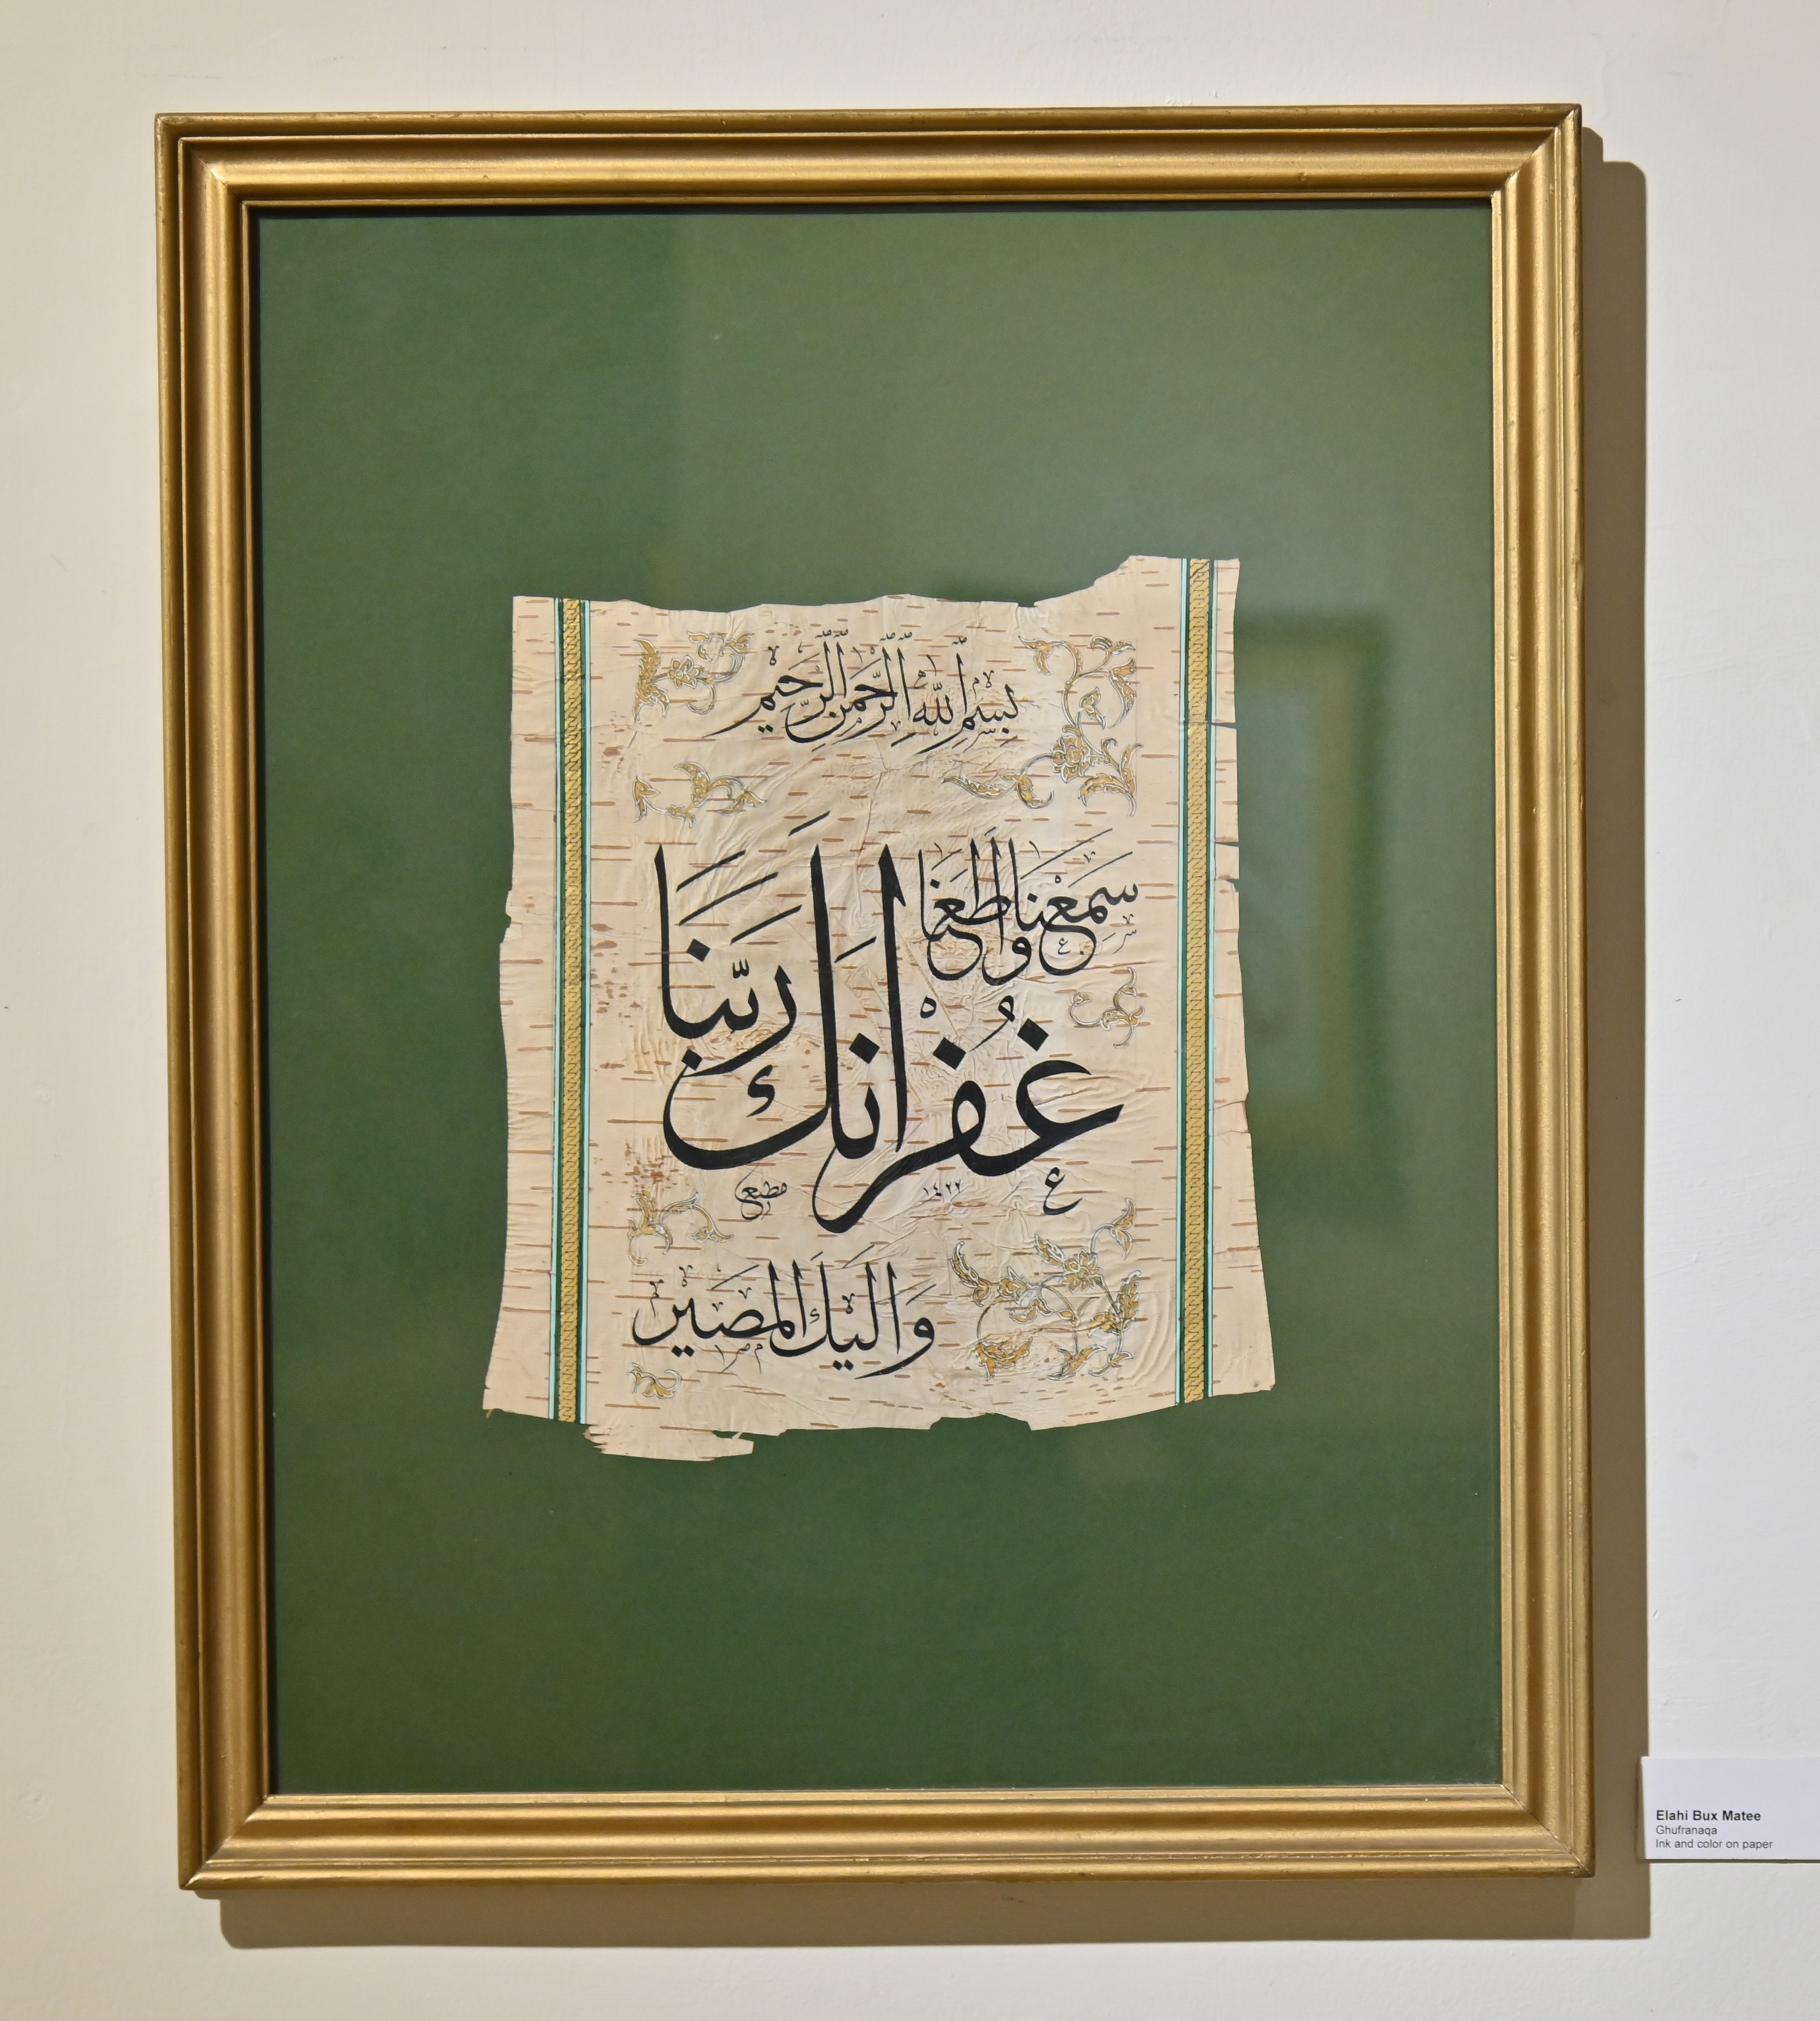 بِسْمِ اللهِ الرَّحْمٰنِ الرَّحِيْمِ
سَمِعْنَا وَاَطَعْنَا
غُفْرَانَكَ رَبَّنَا
١٤٢٢
مطیع
وَاِلَيْكَ الْمَصِيْر
Elahi Bux Matee
Ghufranaqa
Ink and color on paper